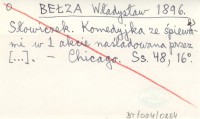 BEŁZA Władysław 1896.
Słowiczek. Komedyjka ze śpiewa-
mi w 1 akcie naśladowana przez
[...]. – Chicago. Ss. 48, 16°.